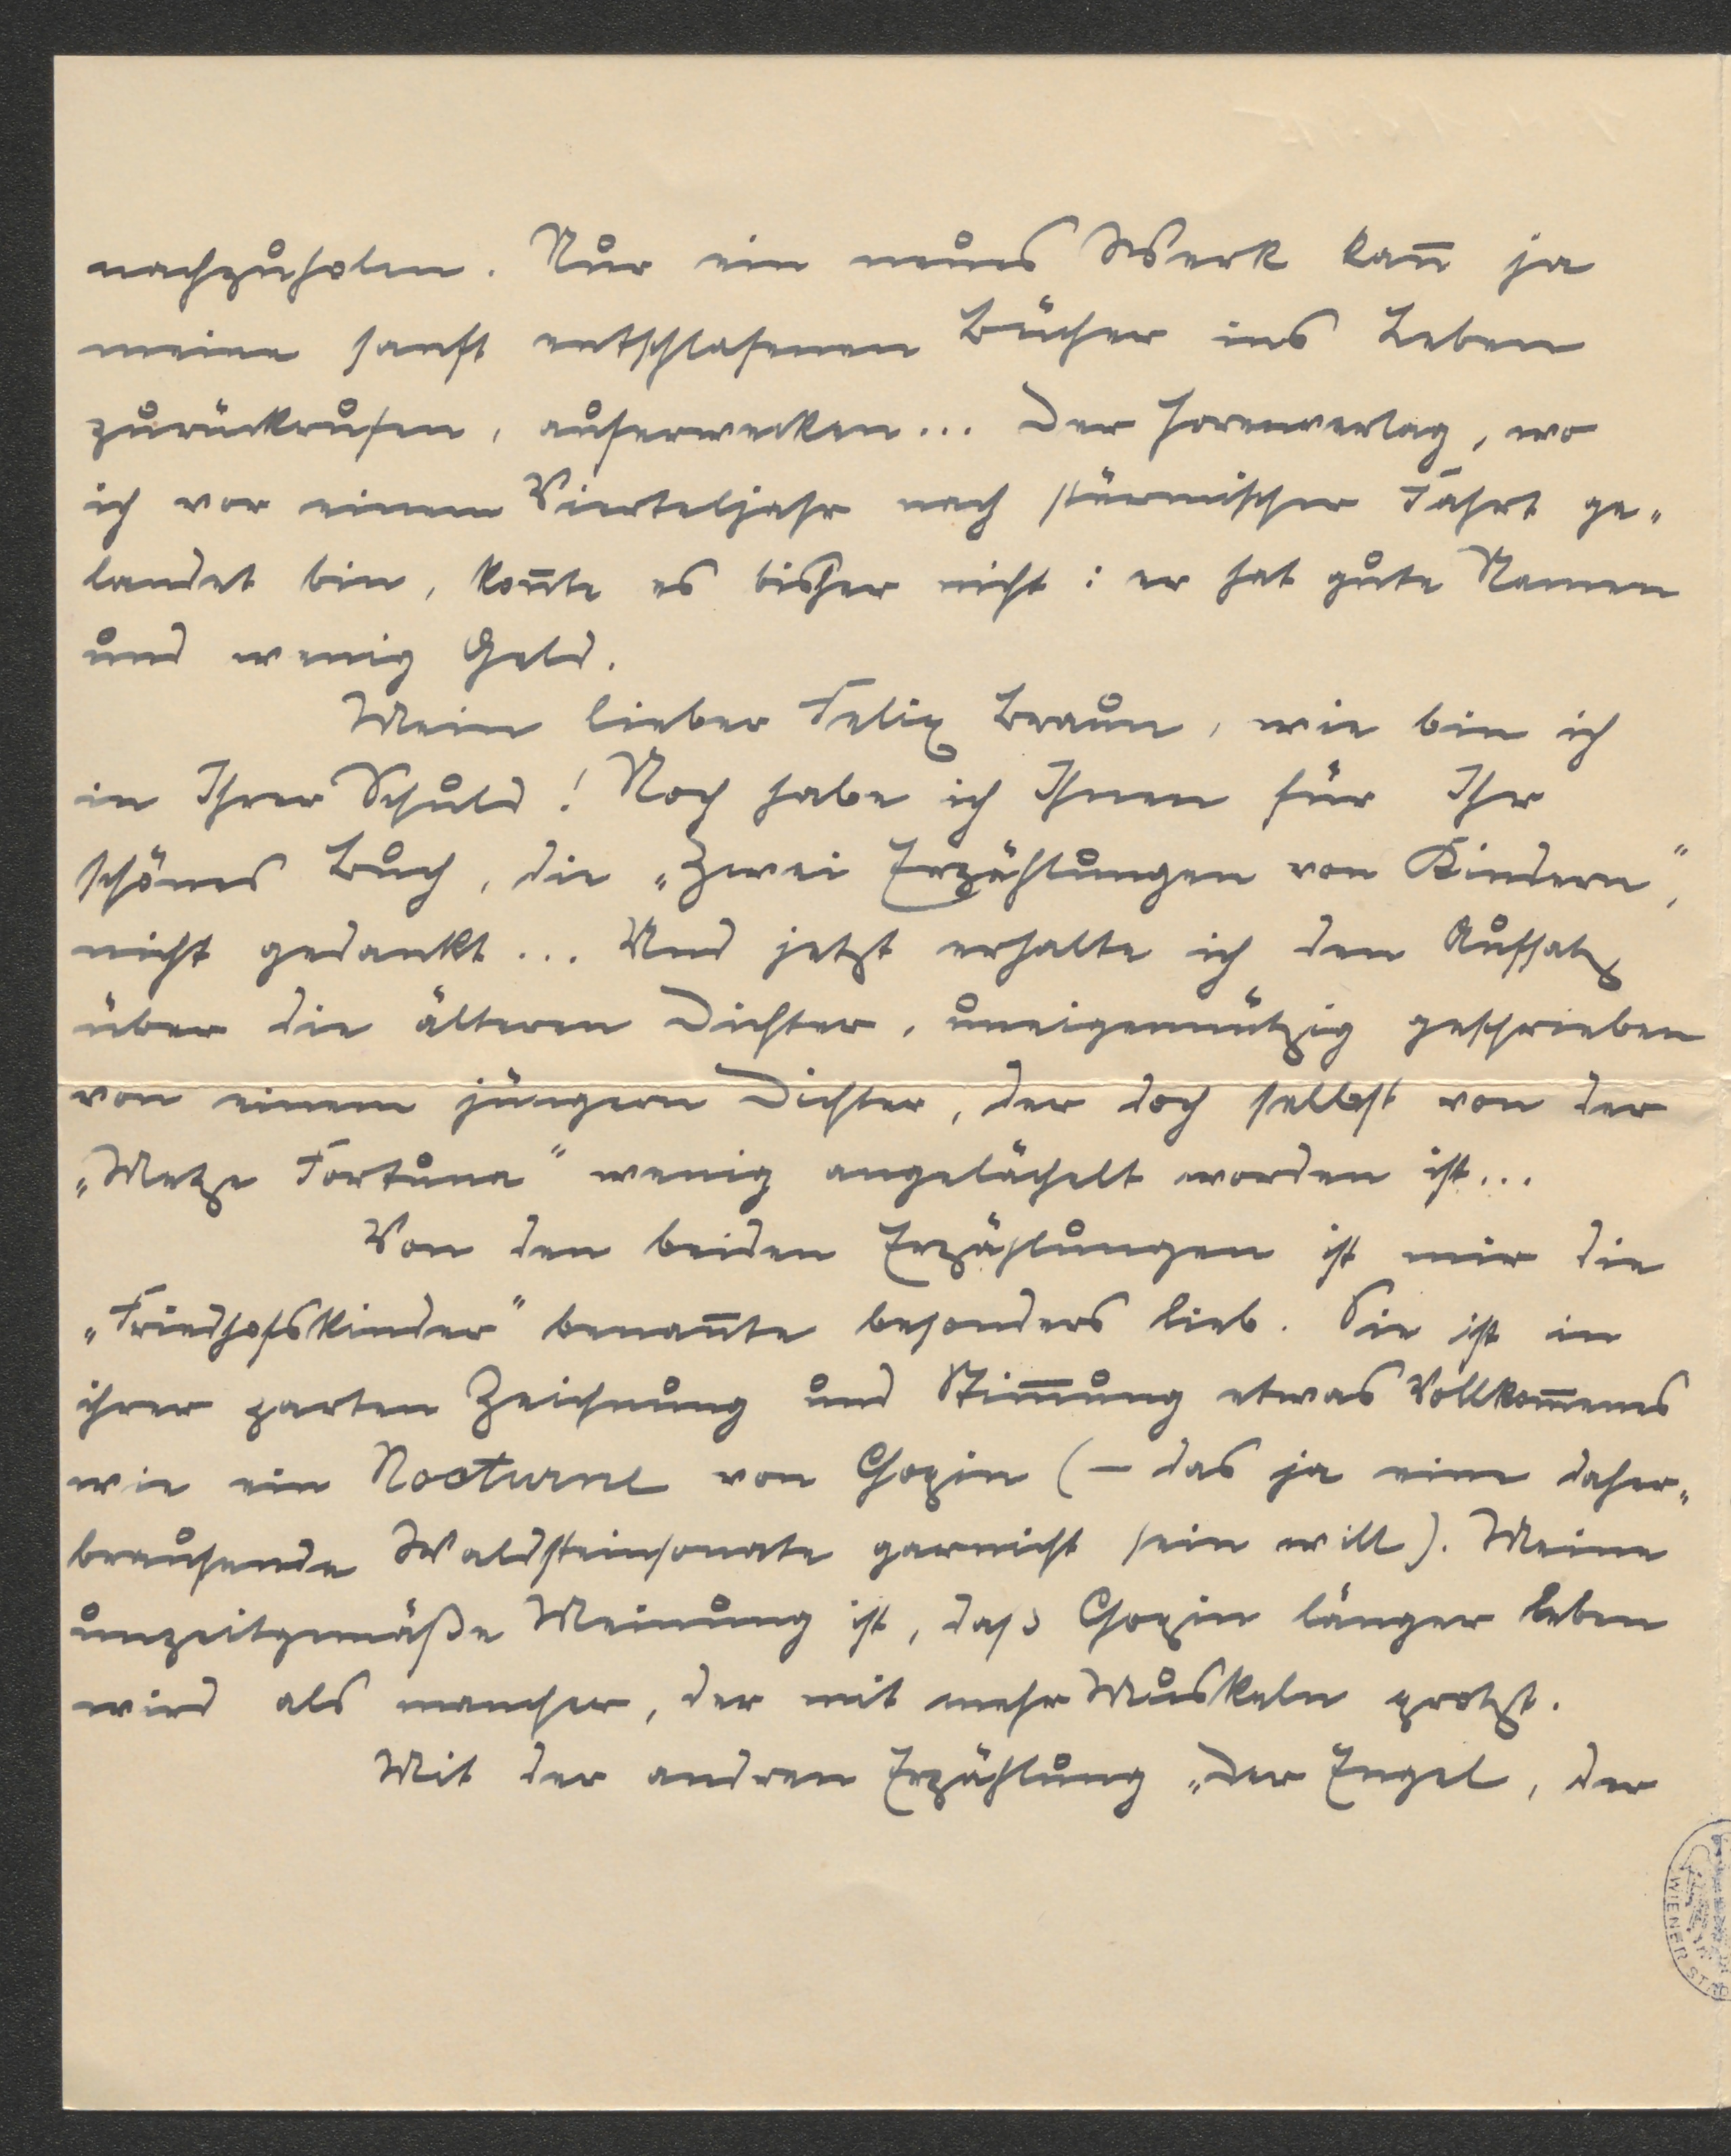 nachzuholen. Nur ein neues Werk kan̄ ja
meine sanft entschlafenen Bücher ins Leben
zurückrufen, auferwecken... Der Horenverlag, wo
ich vor einem Vierteljahr nach stürmischer Fahrt ge-
landet bin, kon̄te es bisher nicht: er hat gute Namen
und wenig Geld.
Mein lieber Felix Braun, wie bin ich
in Ihrer Schuld! Noch habe ich Ihnen für Ihr
schönes Buch, die „Zwei Erzählungen von Kindern“,
nicht gedankt... Und jetzt erhalte ich den Aufsatz
über die älteren Dichter, uneigennützig geschrieben
von einem jüngern Dichter, der doch selbst von der
„Metze Fortuna“ wenig angelächelt worden ist...
Von den beiden Erzählungen ist mir die
„Friedhofskinder“ benan̄te besonders lieb. Sie ist in
ihrer zarten Zeichnung und Stim̄ung etwas Vollkom̄enes
wie ein Nocturne von Chopin (– das ja eine daher-
brausende Waldsteinsonate garnicht sein will). Meine
unzeitgemäße Meinung ist, dass Chopin länger leben
wird als mancher, der mit mehr Muskeln protzt.
Mit der andren Erzählung „Der Engel, der
WIENER ST